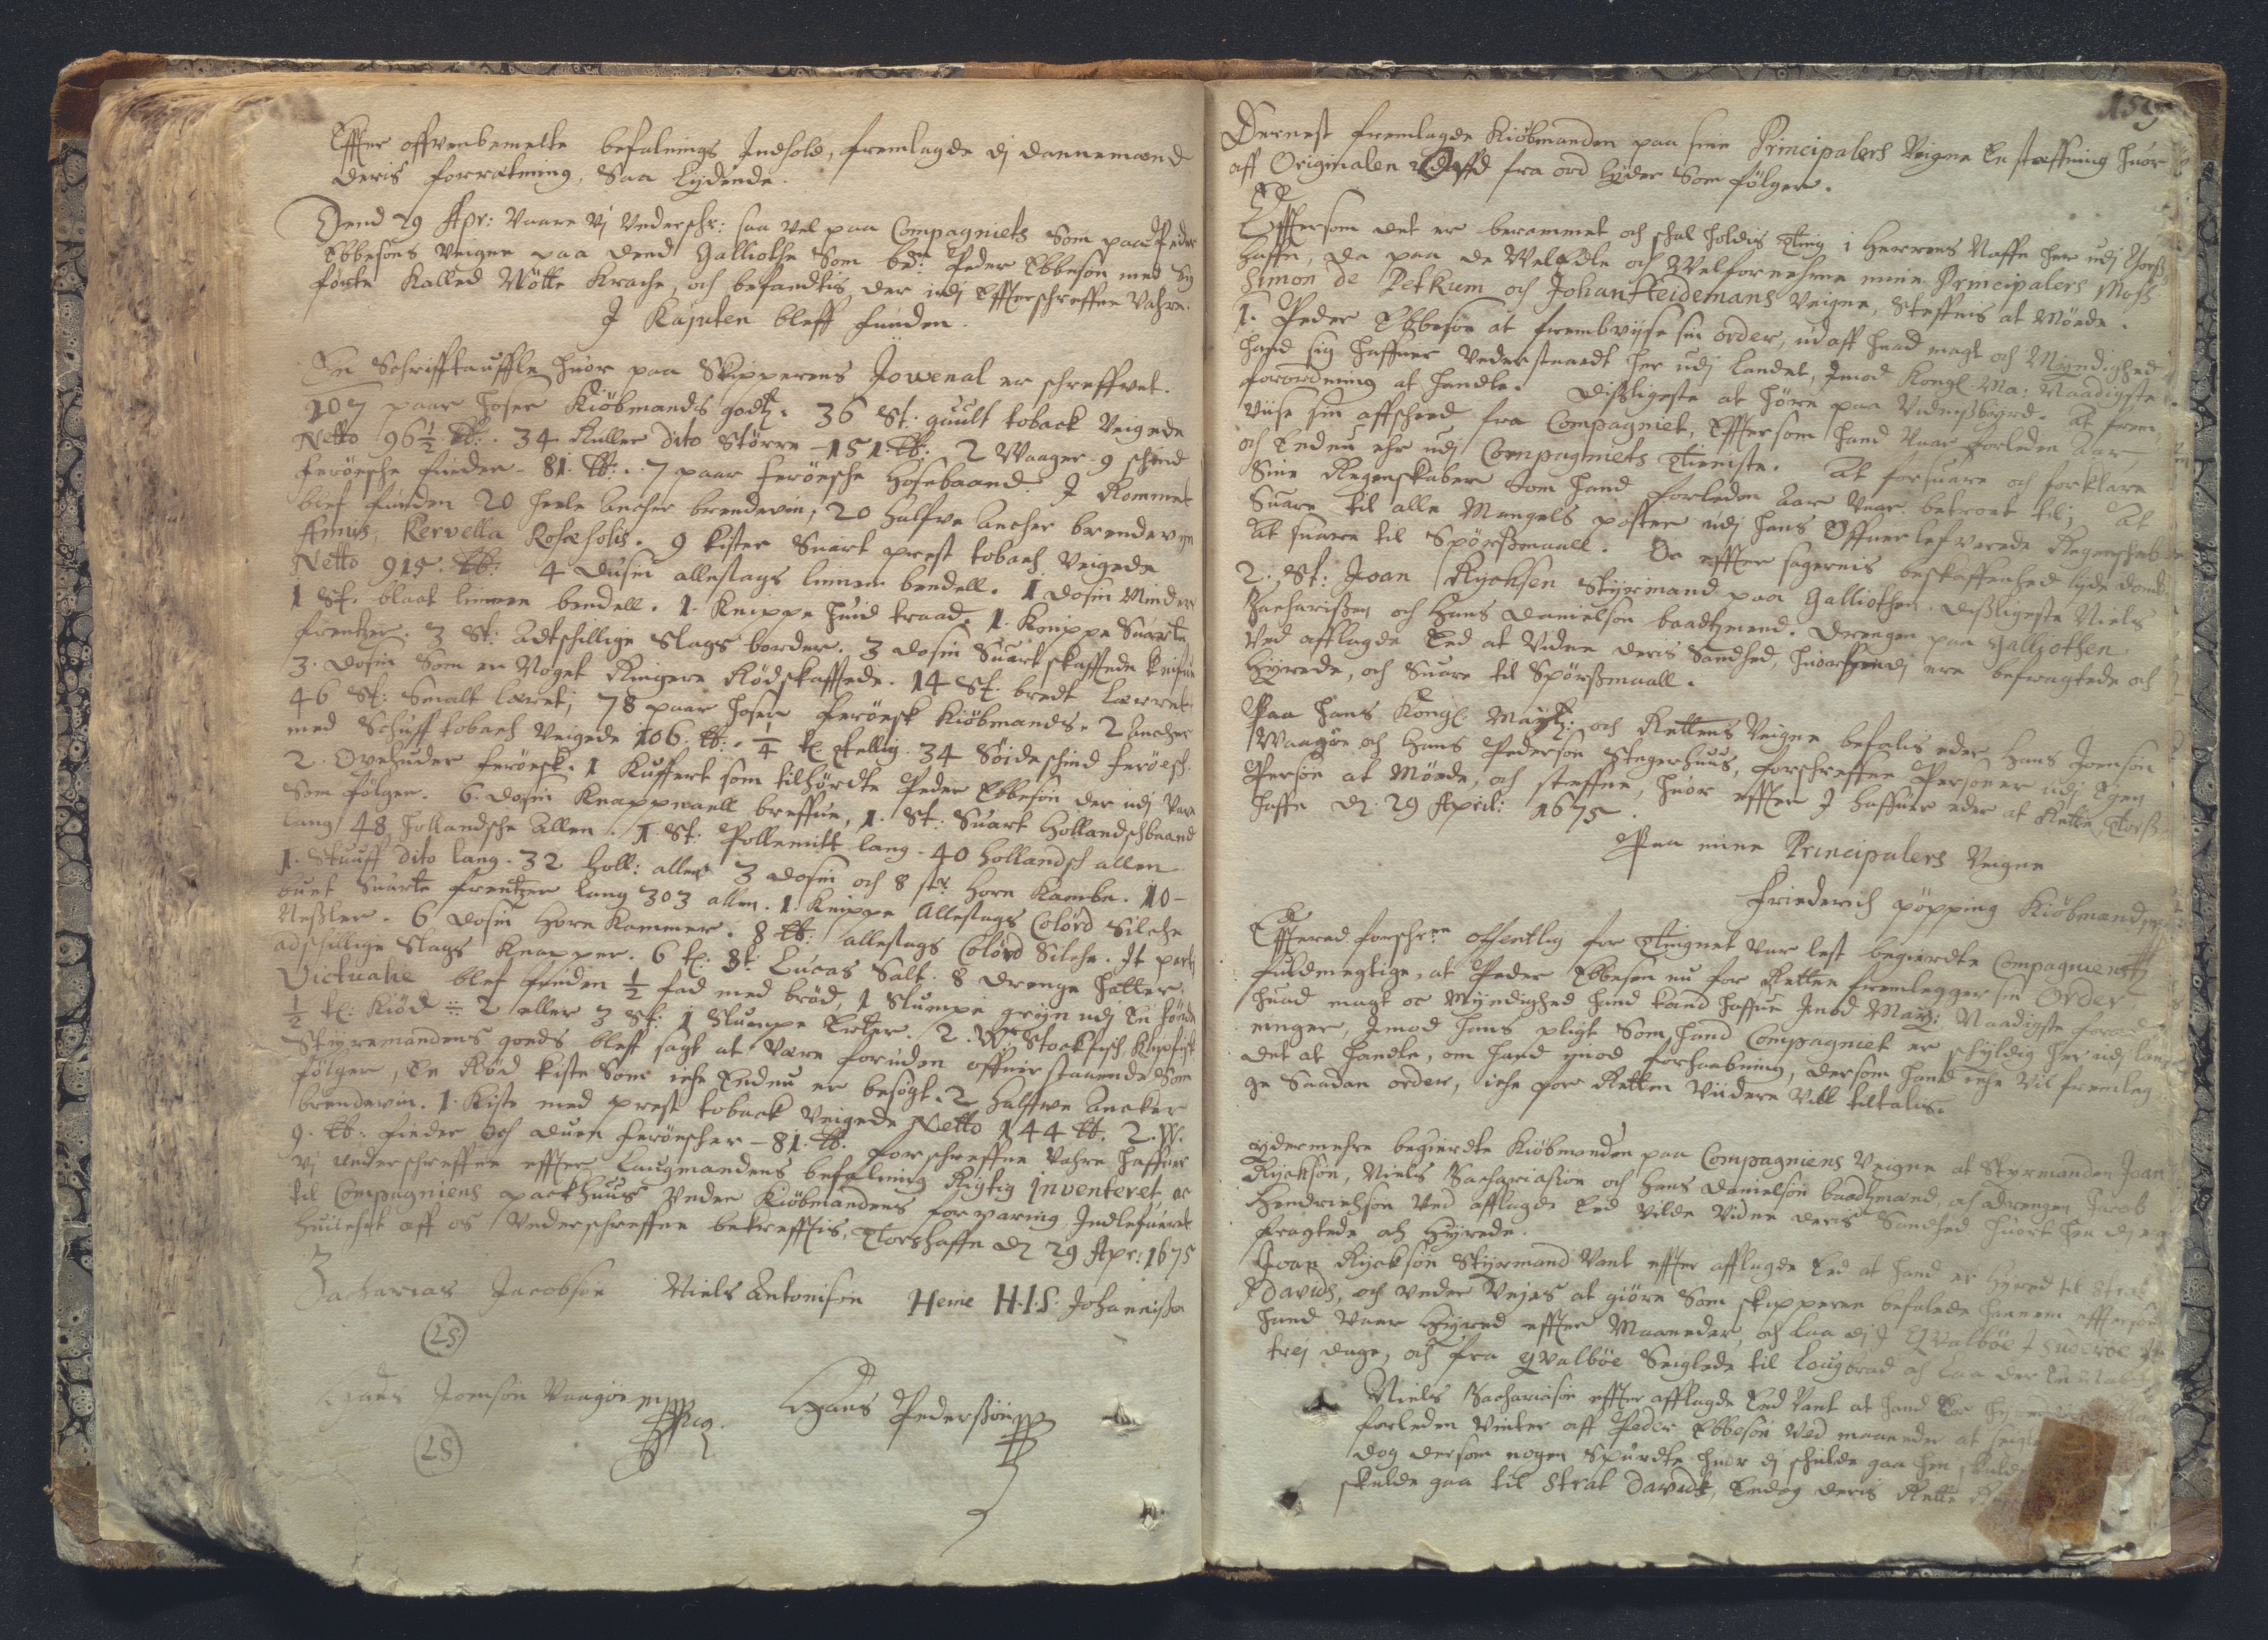 Effter offvenbemelte befalnings Indhold, fremlagde dj dannemænd
deris forretning, Saa Lydende.
Dend 29 Apr: Vaare Vj Underschr: saa vel paa Compagniets Som paa Peder
Ebbesøns Veigne paa dend Galliothe Som bd: Peder Ebbesøn med sig
førte Kalled Nötte Krache, och befandtis der udj Effterschreffne Vahre.
I Kajuten bleff funden.
En Schrifftauffle huor paa Skipperens Jowenal er schreffvet.
107 paar hoser Kiöbmands godtz. 36 St: guult toback Veigede
Netto 96½ ℔:. 34 Ruller dito Större - 151 ℔: 2 Waager 9 schind
Feröesche fieder - 81. ℔:. 7 paar Feröesche Hosebaand. I Rommet
blef funden 20 heele Ancher brendevin, 20 halfve Ancher brendevyn
Annis, Kervella Rosæsolis. 9 kister Suart prest toback Veigede
Netto 915. ℔: 4 dusin allestags linnen bendell. 1 dosin Minder
1 St. blaat linnen bendell. 1. Knippe huid traad. 1. Knippe Suarte
frentzer. 3 St: adtschillige Slags border. 3 dosin Suart skafftede Knifue
3. dosin Som en Noget Ringere Rödskafftede. 14 St: bredt Lærret
46 St: Smalt læret; 78 paar hoser Feröesk Kiöbmands. 2 Ancher
med Schuff toback Veigede 106. ℔:. ¼ t: tellig. 34 Söideschind feröesch.
2. Oxehuder feröesk. 1 Kuffert som tilhördte Peder Ebbesön der udj Var
Som fölger. 6. dosin Knappenaell breffue, 1. St: Suart Hollandsch baand
lang 48 hollandsche Allen. 1 St. Pollemitt lang - 40 hollandsch allen
1. Stuuff dito lang. 32 Holl: allen 3 dosin och 8 stk. Horn Kambe. 10 -
bunt Suarte frentzer lang 303 allen. 1. Knippe Allestags Colörd Silche
Nestler. 6 dosin Horn Kammer. 8 ℔: allestags Colörd Silche. It parti
adschillige Slags Knapper. 6 t: St: Lucas Salt. 8 drenge hatter.
Victualie blef funden ½ fad med bröd, 1 Slumpe gryn udj En tönde
½ t: Kiöd = 2 eller 3 St: 1 Slumpe Erter. 2. W: Stockfisch Klipfisk
Styremandens goeds bleff sagt at være foruden offuerstaaende Som
fölger, En Röd kiste Som iche Endnu er besögt. 2 halffve Ancker
brendevin. 1. Kiste med prest toback Veigede Netto 144 ℔. 2. W.
9. ℔: fieder och duun feröescher - 81. ℔. forschreffne Vahre haffuer
Vj underschreffne effter Laugmandens befalning Rigtig inventeret, oc
til Compagniens packhuus Under Kiöbmandens forvaring Indlefueret
huilchet aff os Underschreffne bekrefftis, Torshaffn d: 29 Apr: 1675
Zacharias Jacobsön Niels Antonisön Heine H.I.S. Johannisön
LS
Hans Joensön Vaagöe Hans Pedersön
LS
159
Dernest fremlagde Kiöbmanden paa sine Principalers Veigne En steffning huor
aff Originalen fra ord lyder Som fölger.
Effersom det er berammet och skal holdis Ting i Herrens Naffn her udj Torss
haffn, da paa de Weledle och Welfornehme mine Principalers Mosr
Simon de Petkum och Johan Heidemans Veigne, Steffnis at Möede.
1. Peder Ebbesön at frembviise sin order, udaff huad magt och Myndighed
hand sig haffuer Understaaedt her udj Landet, Imod Kongl: Ma: Naadigste
forordning at handle. Disligeste at höre paa Vidnissbyrd. At frem
viise sin affscheed fra Compagniet, Efftersom hand Vaar forleden Aar
och Endnu ehr udj Compagniets Tieniste. At forsuare och forklare
Sine Regenskaber Som hand forleden Aar Vaar betroet til; At
Suare til alle Mangels poster udj hans Offuer lefverede Regenschaber
At suare til Spörssmaall. Da effter sagernis beskaffenhed lyde domb.
2. St: Joan Rycksen Styrmand paa Galliothen. disligeste Niels
Zacharissen och Hans Danielsön baadtzmend. Drengen paa Galliothen
Ved afflagde Eed at Vidne deris Sandhed, huorhen dj ere befragtede och
Hyrede, och Suare til Spörssmaall.
Paa Hans Kongl: Maytz: och Rettens Veigne befalis eder Hans Joensön
Waagöe och Hans Pedersön Stegerhuus, forschreffne Personer udj Egen
Persön at Möede, och steffne, huor effter I haffuer eder at Rette. Torss
haffn d: 29 April: 1675.
Paa mine Principalers Veigne
Friederich Pöpping Kiöbmand
Effterat forschrne offentlig for Tingnet Var lest begierdte Compagniens
fuldmegtige, at Peder Ebbesen nu for Retten fremlegger sin Order
huad magt oc Myndighed hand kand haffue Imod Maytz: Naadigste forord
ninger, Imod hans pligt Som hand Compagniet er schyldig her udj landet
det at handle, om hand imod forhaabning, dersom hand iche Vil fremleg
ge Saadan order, iche for Retten Viidere Vill tiltalis.
Ydermehre begierdte Kiöbmanden paa Compagniens Veigne at Styrmanden Joan
Ryckson, Niels Sachariasön och Hans Danielsön baadtzmænd, och drengen Jacob
Hendrichsön Ved afflagde Eed Vilde Vidne deris Sandhed huort hen dj er
fragtede och Hyrede.
Joan Rycksön Styrmand Vant effter afflagde Eed at hand er hyred til Strat
Davids, och Under Vejes at giöre Som skipperen befalede hannem efftersom
hand Vaar Hyred effter Maaneder, och laa dj I Qvalböe I Suderöe
trej dage, och fra Qvalböe Seiglede til Lougbrad och laa der
Niels Sachariasön effter afflagde Eed Vant at hand Er hyred
forleden Vinter aff Peder Ebbesön Ved maaneder at seigle
dog dersom nogen Spurdte huor dj schulde gaa hen, skulde
skulde gaa til Strat Davids, Endog deris Rette